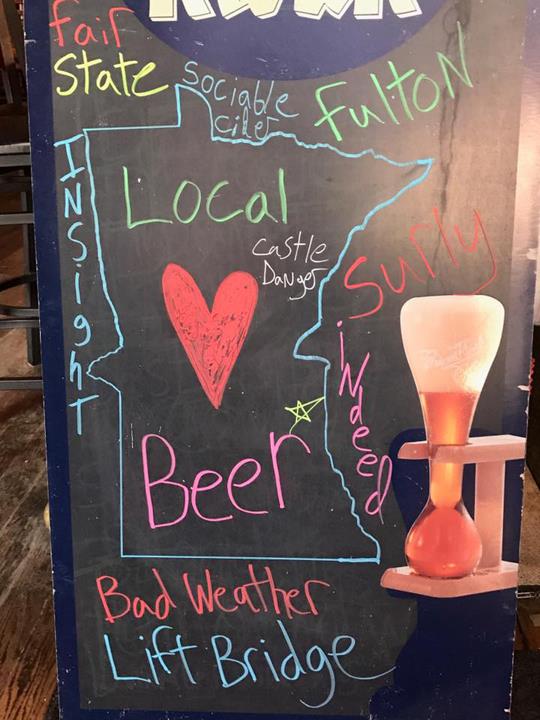 Fair
State
Sociable
Cider
Fulton
INSighT
Local
Castle
Danger
Surly
iNdeed
Beer
Bad Weather
Lift Bridge